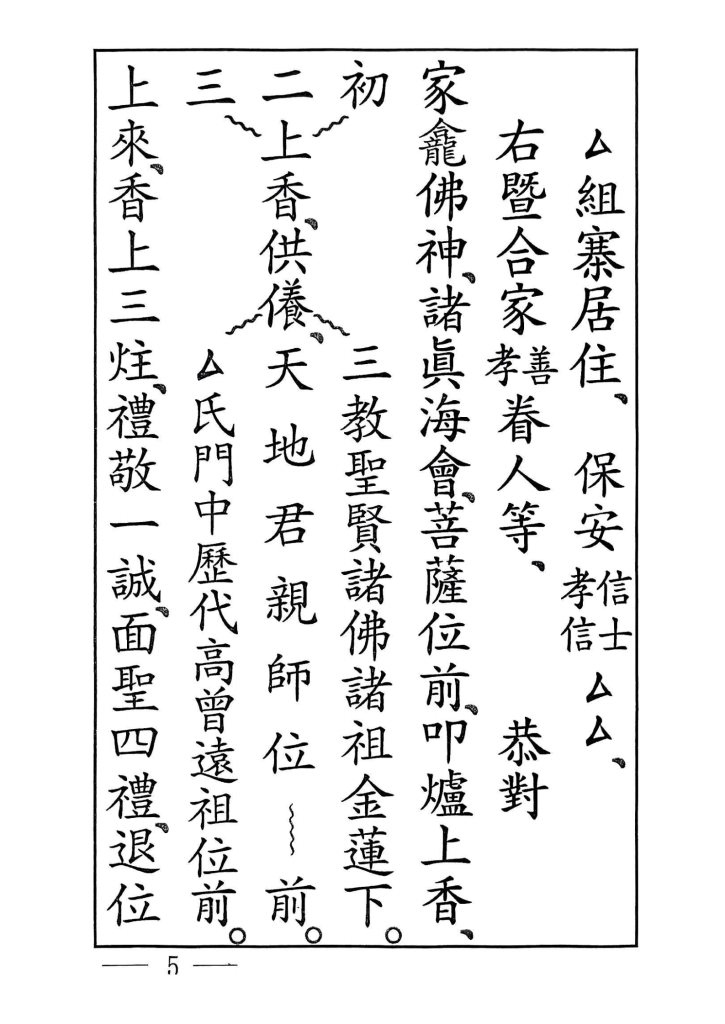 △組寨居住、保安信士孝信△△、
右暨合家善孝眷人等、恭對
家龕佛神、諸眞海會、菩薩位前、叩爐上香、
初 三教聖賢諸佛諸祖金蓮下。
二上香、供儀、天地君親師位~~前。
三 △氏門中歷代高曾遠祖位前。
上來、香上三炷、禮敬一誠、面聖四禮、退位
5